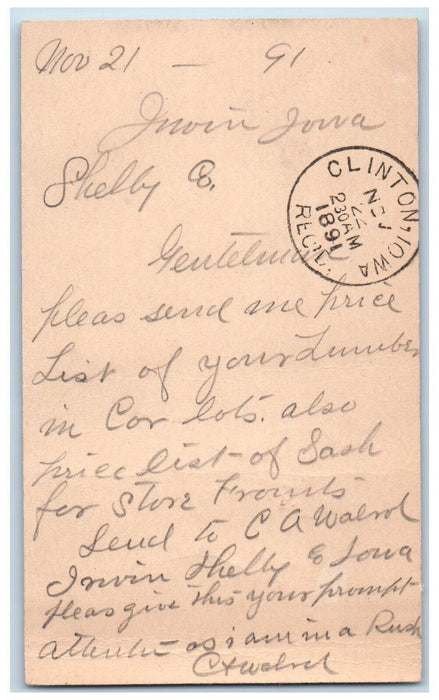 Nov 21 — 91
Irwin Iowa
Shelby Co.
CLINTON, IOWA
NOV
22
230AM
1891
REC'D.
Gentelman
pleas send me price
List of your Lumber
in Car lots. also
price list of Sash
for Store Fronts
Send to C A Walrod
Irwin Shelby Co Iowa
pleas give this your prompt
attention as i am in a Rush
CA Walrod